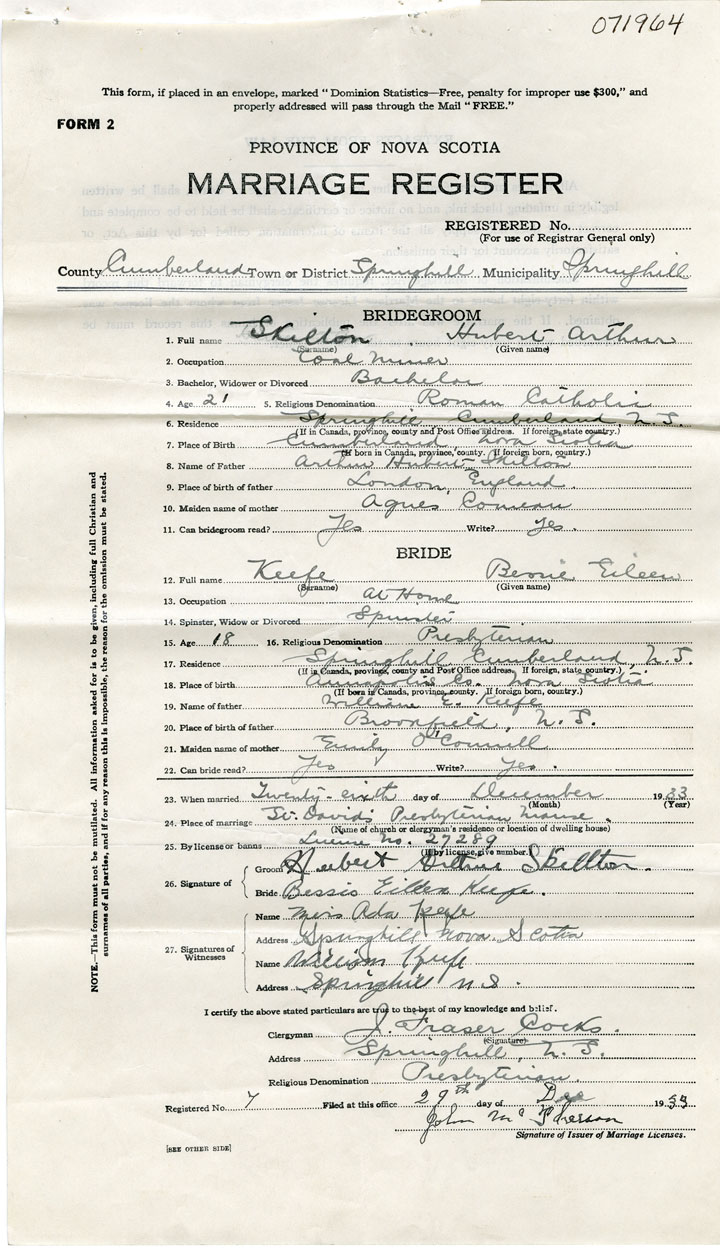 071964
This form, if placed in an envelope, marked "Dominion Statistics—Free, penalty for improper use $300," and
properly addressed will pass through the Mail "FREE."
FORM 2
PROVINCE OF NOVA SCOTIA
MARRIAGE REGISTER
REGISTERED No.
(For use of Registrar General only)
County Cumberland Town or District Springhill Municipality Springhill
BRIDEGROOM
1. Full name Skilton Hubert Arthur
(Surname) (Given name)
2. Occupation Coal Miner
3. Bachelor, Widower or Divorced Bachelor
4. Age 21 5. Religious Denomination Roman Catholic
6. Residence Springhill Cumberland, N.S.
(If in Canada, province, county and Post Office address. If foreign, state country.)
7. Place of Birth Cumberland Nova Scotia
(If born in Canada, province, county. If foreign born, country.)
8. Name of Father Arthur Hubert Skilton
9. Place of birth of father London, England
10. Maiden name of mother Agnes Comeau
11. Can bridegroom read? Yes Write? Yes.
BRIDE
12. Full name Keefe Bessie Eileen
(Surname) (Given name)
13. Occupation At Home
14. Spinster, Widow or Divorced Spinster
15. Age 18 16. Religious Denomination Presbyterian
17. Residence Springhill Cumberland, N.S.
(If in Canada, province, county and Post Office address. If foreign, state country.)
18. Place of Birth Annapolis Co. Nova Scotia
(If born in Canada, province, county. If foreign born, country.)
19. Name of father William E. Keefe
20. Place of birth of father Brookfield, N.S.
21. Maiden name of mother Emily O'Connell
22. Can bride read? Yes Write? Yes.
23. When married Twenty-sixth day of December 1933
(Month) (Year)
24. Place of marriage St. Davids Presbyterian Manse.
(Name of church or clergyman's residence or location of dwelling house)
25. By license or banns License No. 27289
(If by license, give number.)
26. Signature of
Groom Hubert Arthur Skilton.
Bride Bessie Eileen Keefe.
27. Signatures of Witnesses
Name Miss Ada Keefe
Address Springhill Nova Scotia
Name William Keefe
Address Springhill N.S.
I certify the above stated particulars are true to the best of my knowledge and belief.
Clergyman J. Fraser Cocks.
(Signature)
Address Springhill, N.S.
Religious Denomination Presbyterian
Registered No. 7 Filed at this office 29th day of Dec 1933
John McPherson
Signature of Issuer of Marriage Licenses.
[SEE OTHER SIDE]
NOTE.—This form must not be mutilated. All information asked for is to be given, including full Christian and
surnames of all parties, and if for any reason this is impossible, the reason for the omission must be stated.